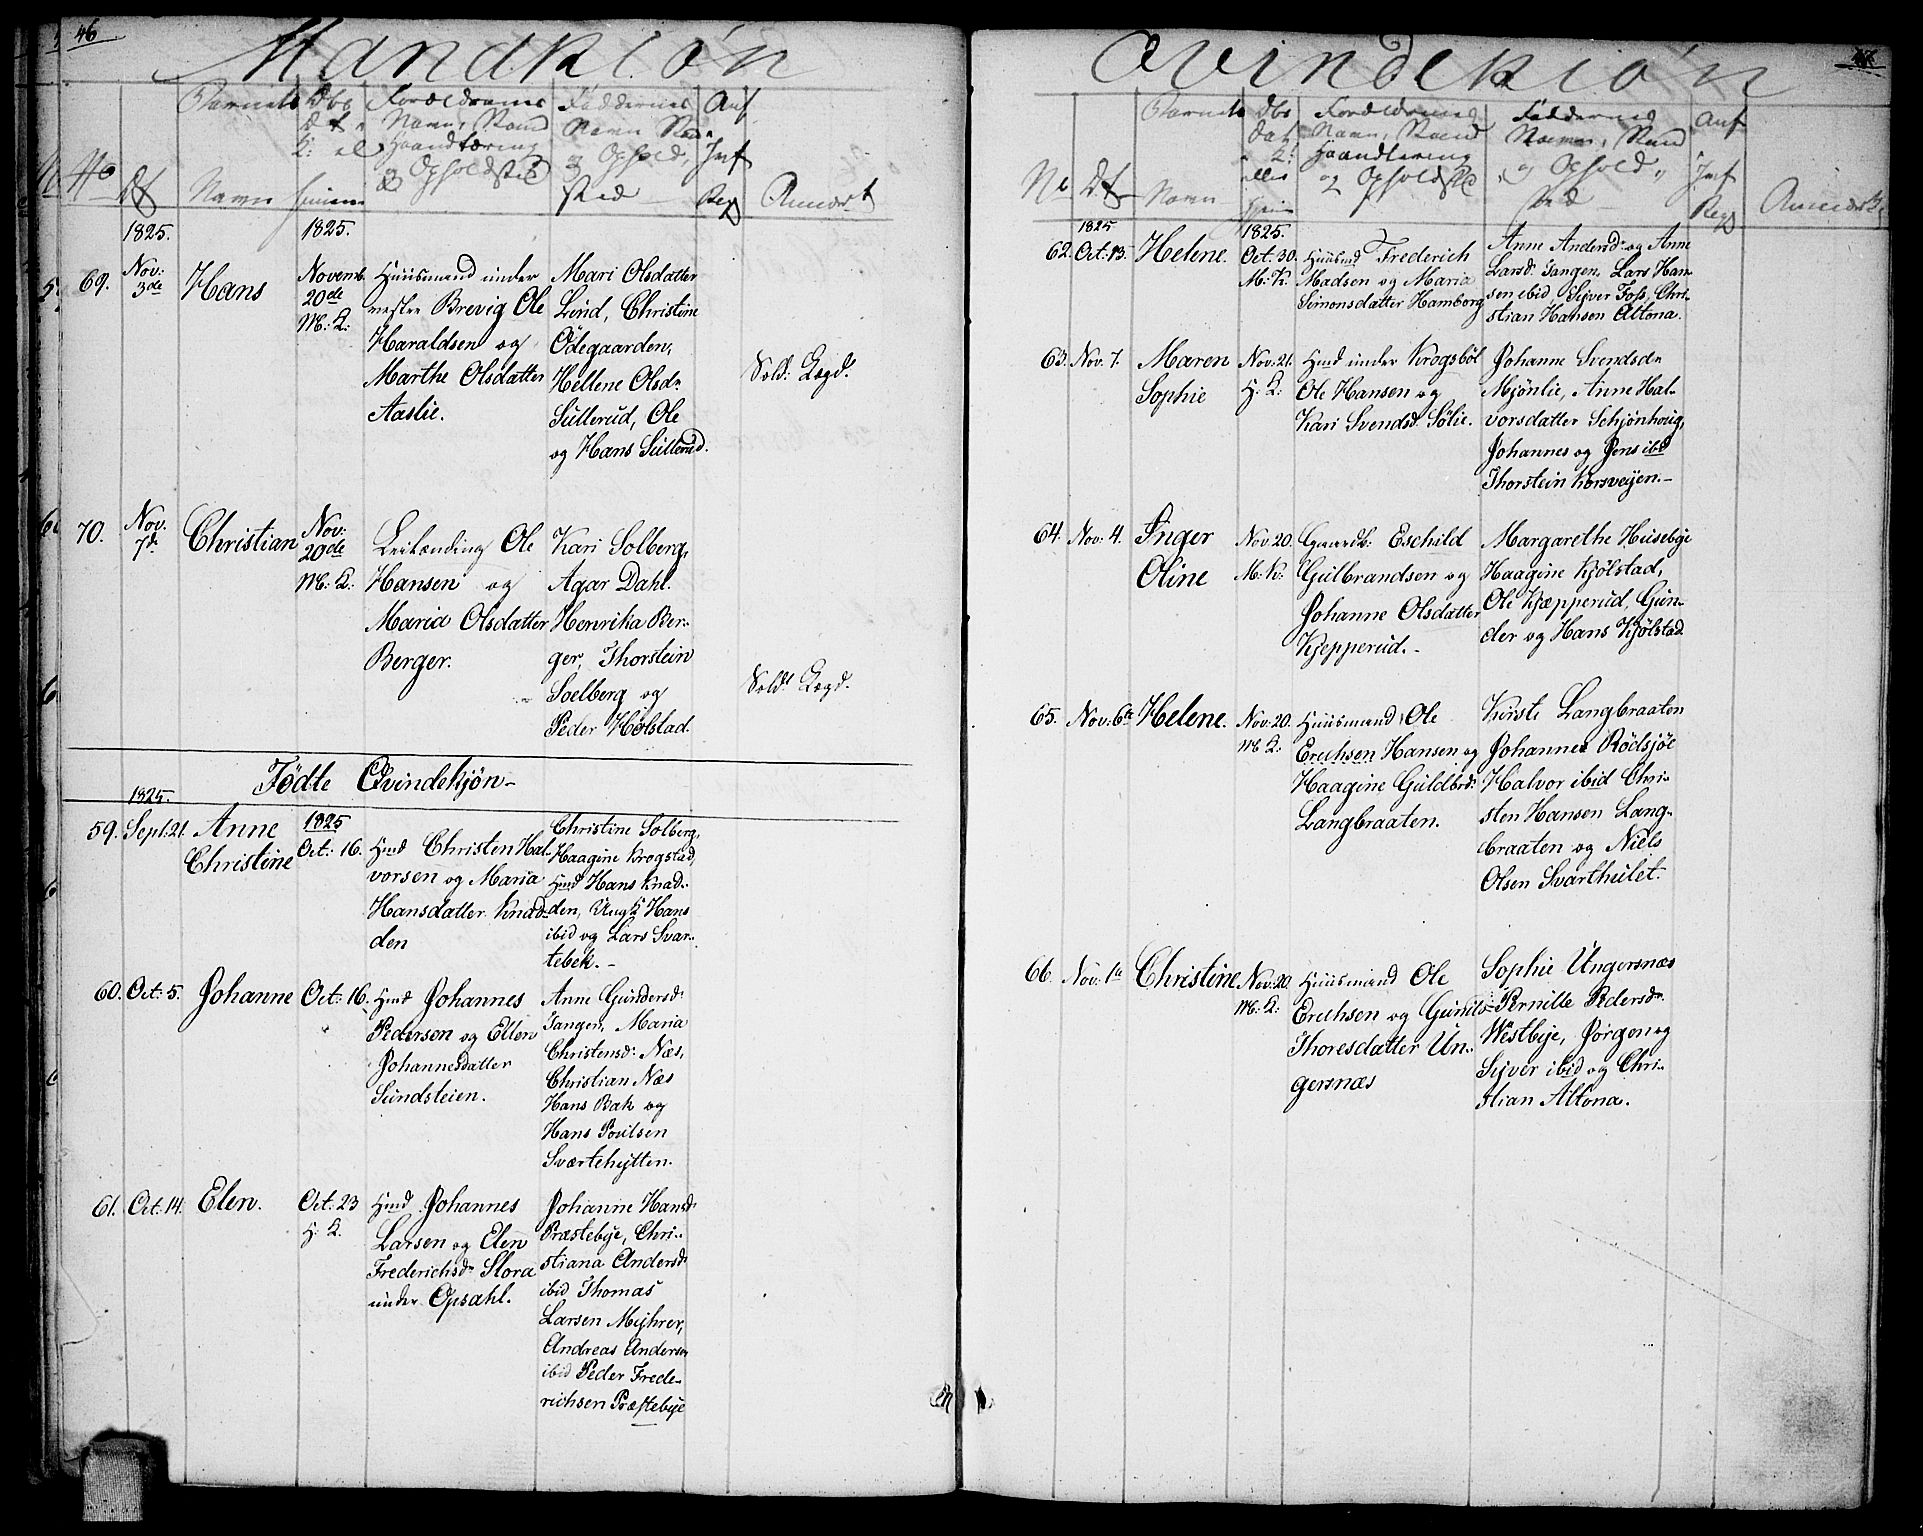 46
Mandkiøn
No
Df
Barnets
Navn
Dbs
Dat
K: el
Hiemme
Forældrenes
Navn, Stand
Haandtæring
og Opholdsted
Faddernes
Navn Stad
og Ophold,
sted
Anf
Jnf
Reg
Anmærk
1825.
1825.
69.
Nov:
3de
Hans
Novemb.
20de
M: K:
Huusmand under
nestre Brevig Ole
Haraldsen og
Marthe Olsdatter
Aaslie.
Mari Olsdatter
Lind, Christine
Ödegaarden,
Hellene Olsdr
Sütterud, Ole
og Hans Sütterud.
Sold: Lægd.
70.
Nov.
7de
Christian
Nov:
20de
M: K:
Leilænding Ole
Hansen og
Maria Olsdatter
Berger.
Kari Solberg,
Agar Dahl.
Henrika Ber-
ger, Thorstein
Soelberg og
Peder Hølstad.
Sold: Lægd.
Födte Qvindekjön-
1825.
59.
Sept: 21.
Anne
Christine
1825
Oct: 16.
Hmd Christen Hal-
vorsen og Maria
Hansdatter Knad-
den
Christine Solberg,
Haagine Krogstad,
Hmd Hans Knad-
den, Ungk Hans
ibid og Lars Svar-
tebek.-
60.
Oct: 5.
Johanne
Oct: 16.
Hmd Johannes
Pedersen og Ellen
Johannesdatter
Sundsteien.
Anne Gundersd:
Tangen, Maria
Christensd: Næs,
Christian Næs
Hans Bak og
Hans Poulsen
Sværtehytten.
61.
Oct: 14.
Elen.
Oct: 23
H: K.
Hmd Johannes
Larsen og Elen
Frederichsdr Slora
under Opsahl.
Johanne Hansd:
Præstebye, Chri-
stiana Andersd:
ibid Thomas
Larsen Myhrer,
Andreas Andersen
ibid Peder Frede-
richsen Præstebye
Qvindekiøn
No
Df
Barnets
Navn
Dbs
Dat
K:
eller
Hjem
Forældrenes
Navn, Stand
Haandtæring
og Opholdsted
Faddernes
Navn, Stand
og Ophold,
sted
Anf
Jnf
Reg
Anmærk
1825
1825.
62.
Oct: 13.
Helene.
Oct: 30.
M: K.
Huusmd Frederich
Madsen og Maria
Simonsdatter Hamborg
Anne Andersd: og Anne
Larsd: Tangen, Lars Han-
sen ibid, Syver Foss, Chri-
stian Hansen Altona.
63.
Nov: 7.
Maren
Sophie
Nov: 21.
H: K:
Hmd under Krogsböl
Ole Hansen og
Kari Svendsd: Sölie.
Johanne Svendsdr
Mjönlie, Anne Hal-
vorsdatter Schjönhoug,
Johannes og Jens ibid
Thorstein Korsveijen.-
64.
Nov: 4.
Inger
Oline
Nov: 20.
M: K:
Gaardb: Eschild
Gulbrandsen og
Johanne Olsdatter
Kjepperud.-
Margarethe Husebye
Haagine Kjölstad,
Ole Kjæpperud, Gun-
der og Hans Kjölstad
65.
Nov: 6te
Helene.
Nov: 20.
M: K:
Huusmand Ole
Erichsen Hansen og
Haagine Guldbrd:
Langbraaten.
Kirste Langbraaten
Johannes Rödsjöe
Halvor ibid Chri-
sten Hansen Lang-
braaten og Niels
Olsen Svarthulet.
66.
Nov: 1te
Christine
Nov: 20.
M: K:
Huusmand Ole
Erichsen og Gunild
Thoresdatter Un-
gersnæs
Sophie Ungersnæs
Pernille Pedersdr.
Westbye, Jörgen og
Syver ibid og Chri-
stian Altona.